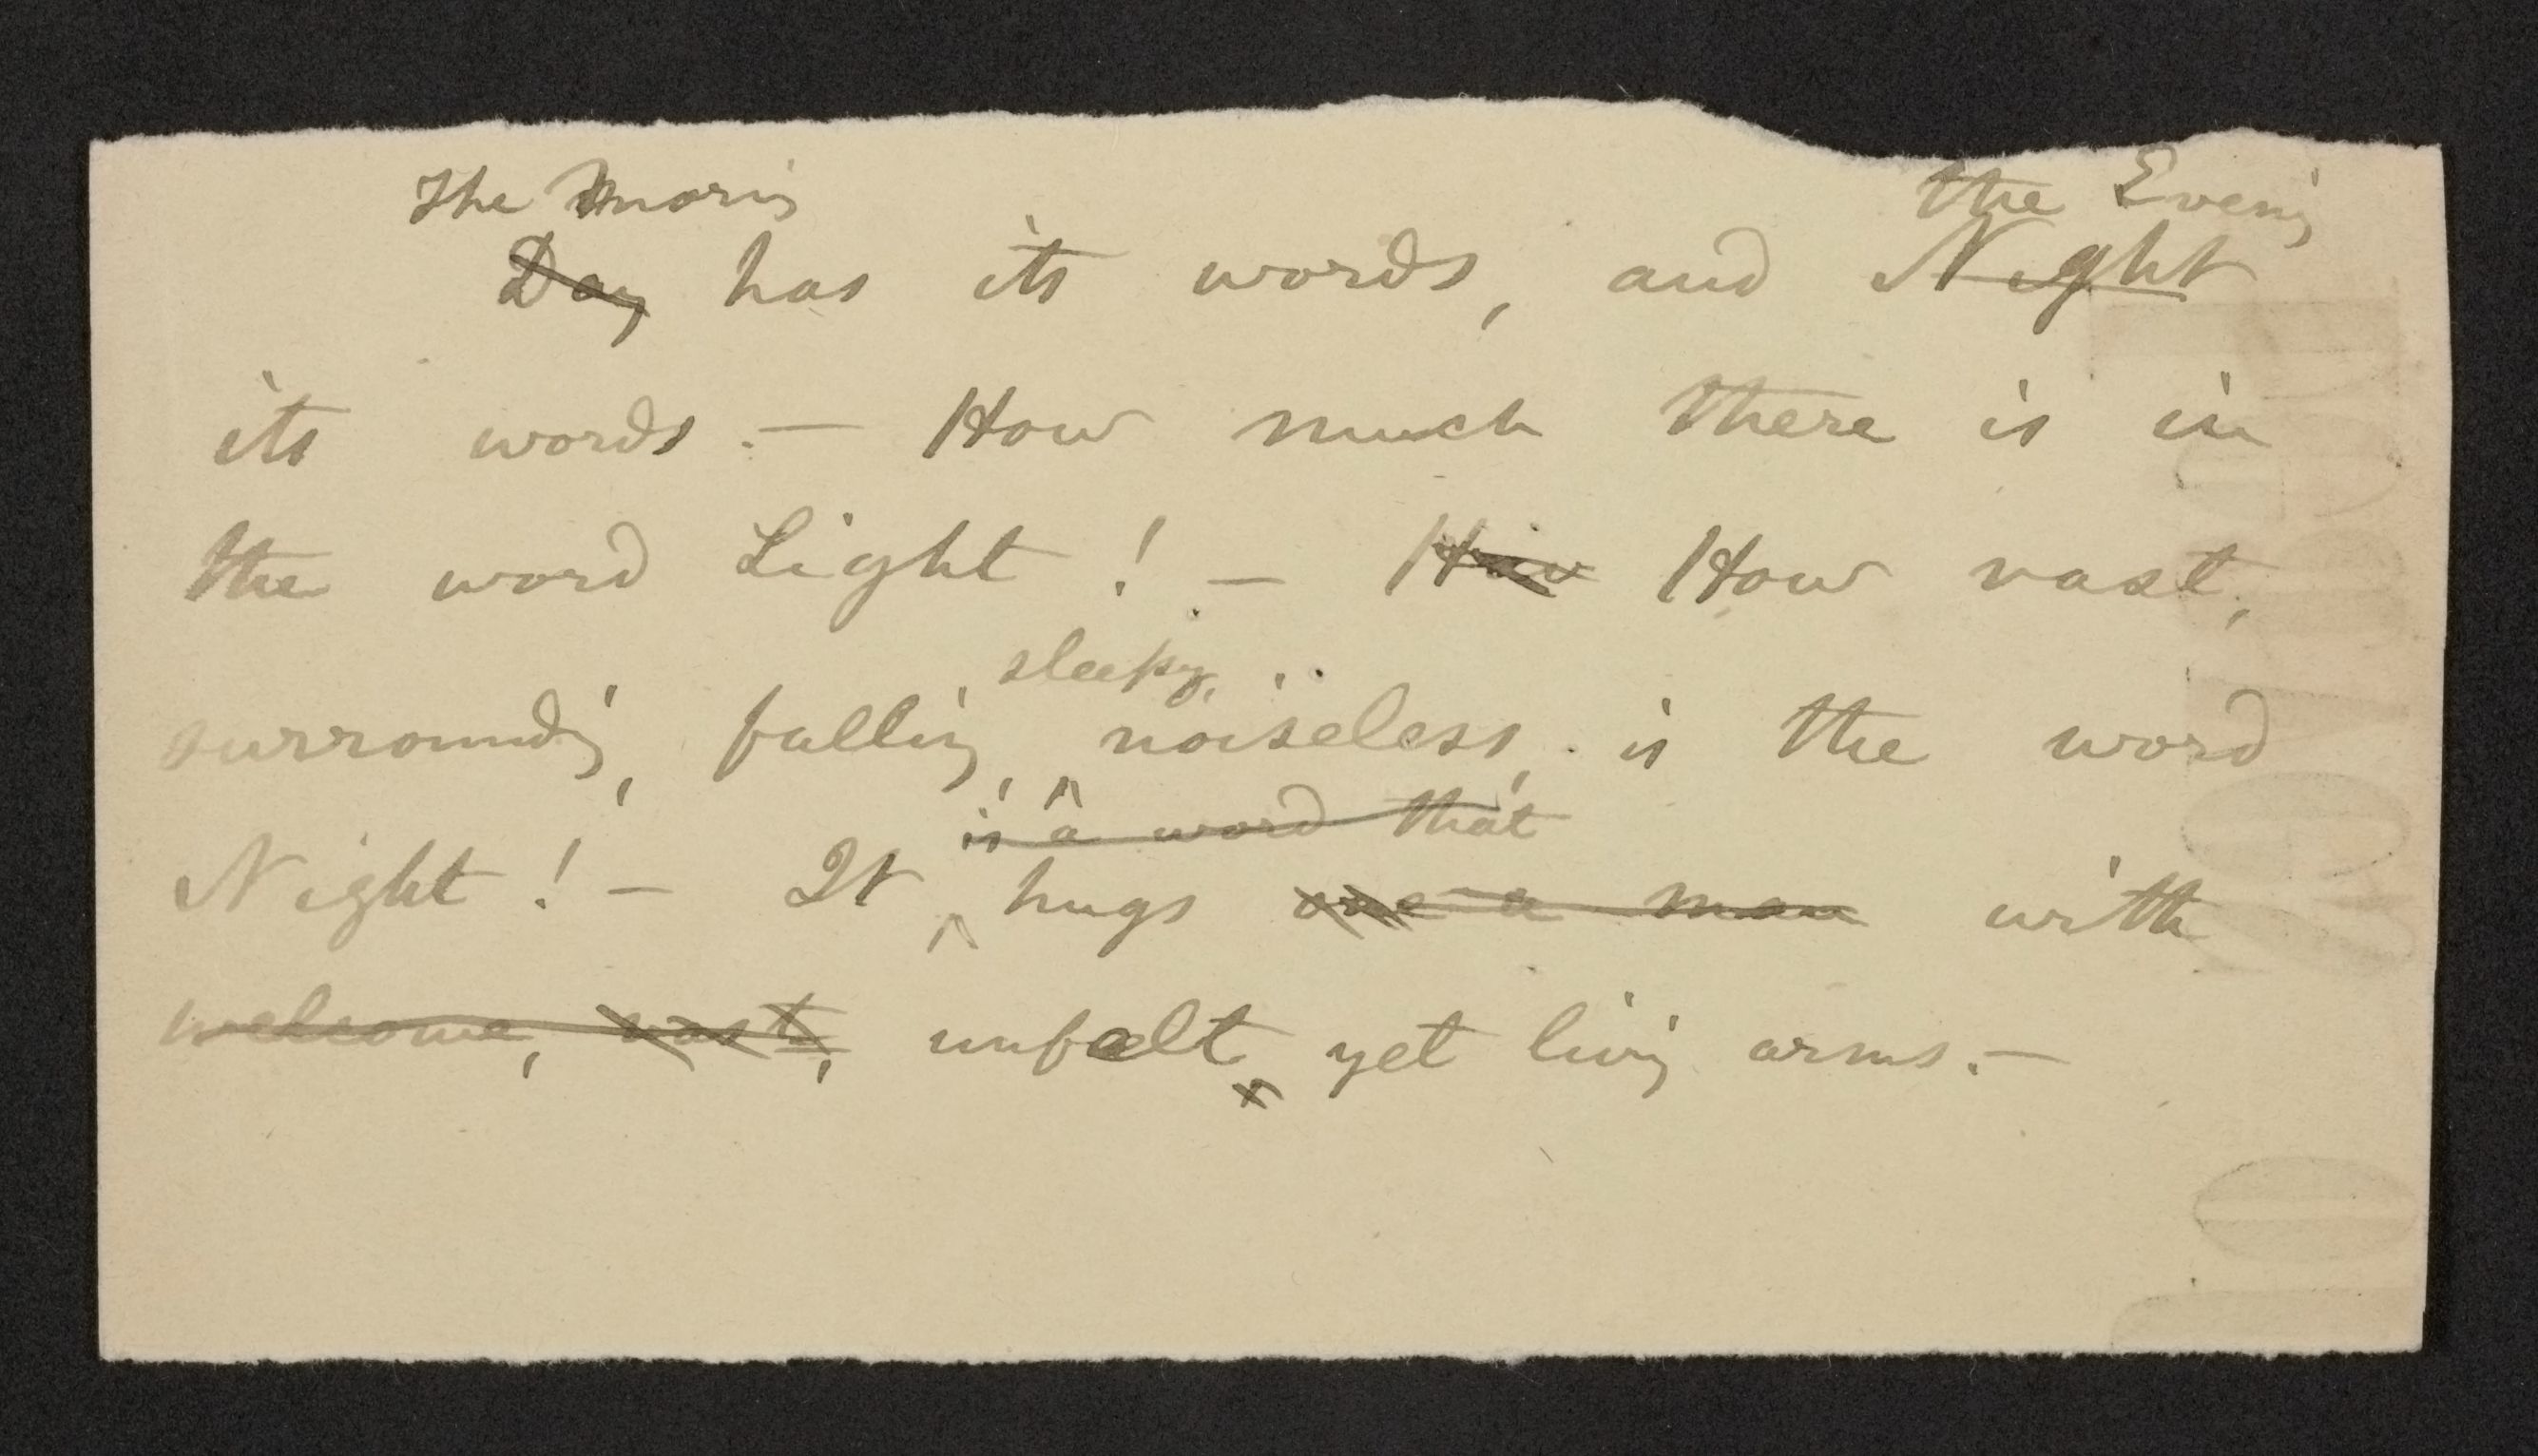 The Morning the Evening
Day has its words, and Night
its words.— How much there is in
the word Light! — How How vast,
sleepy,
surrounding, falling, noiseless, is the word
is a word that
Night! — It ^ hugs one a man with
welcome, vast, unfelt yet living arms.—